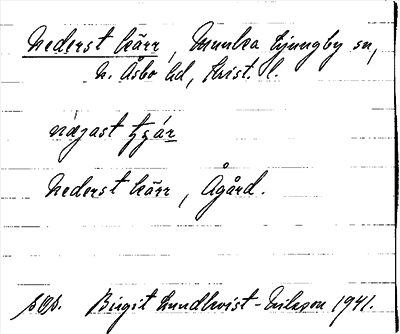 Nederst kärr, Munka Ljungby sn,
N. Åsbo hd, Krist. l.
Nederst kärr, Ågård.
Birgit Lundkvist-Nilsson 1941.